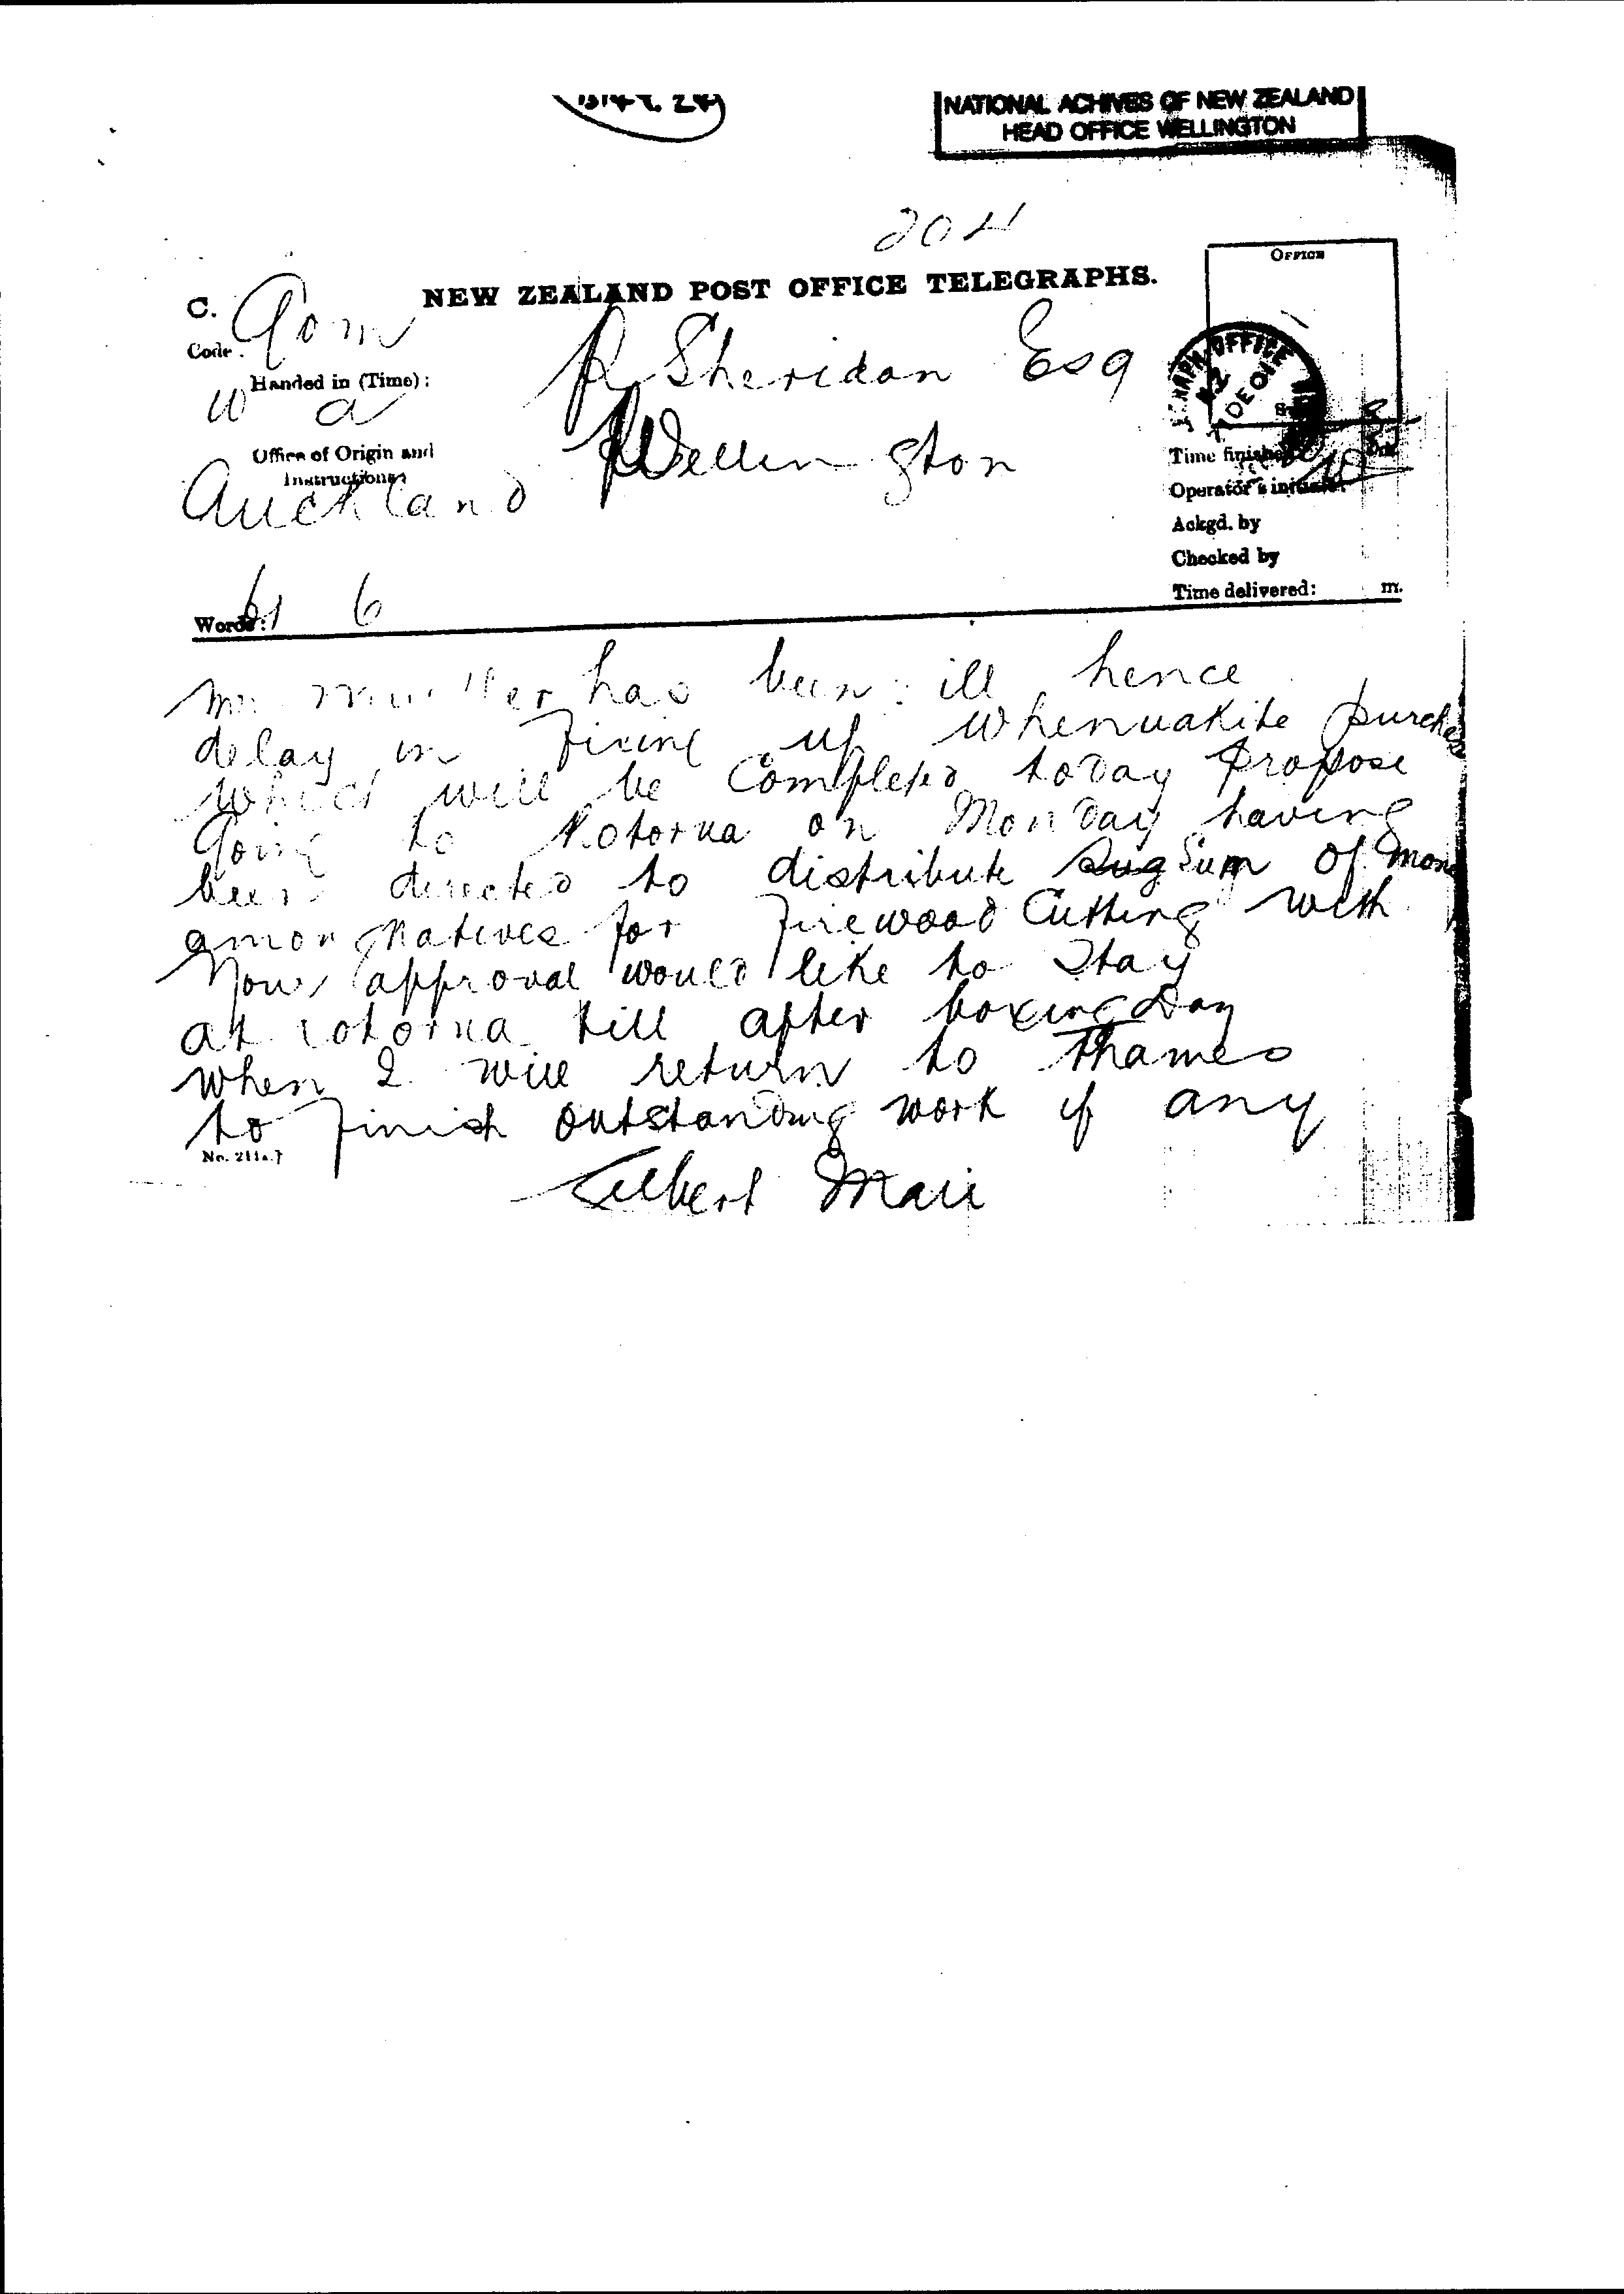 NATIONAL ACHIVES OF NEW ZEALAND
HEAD OFFICE WELLINGTON
204
NEW ZEALAND POST OFFICE TELEGRAPHS.
OFFICE
C.
Code.
Handed in (Time):
Office of Origin and
Instructions
Auckland
P Sheridan Esq
Wellington
Time finished
Operator's initials
Ackgd. by
Checked by
Time delivered: m.
Words: 61 6
Mr has been ill hence
delay in fixing up Whenuakite purchase
which will be Completed today propose
Going to Rotorua on Monday having
been directed to distribute Sum of mone
among Natives for firewood Cutting with
Your approval would like to Stay
at rotorua till after boxing Day
when I will return to Thames
to finish outstanding work if any
Gilbert Mair